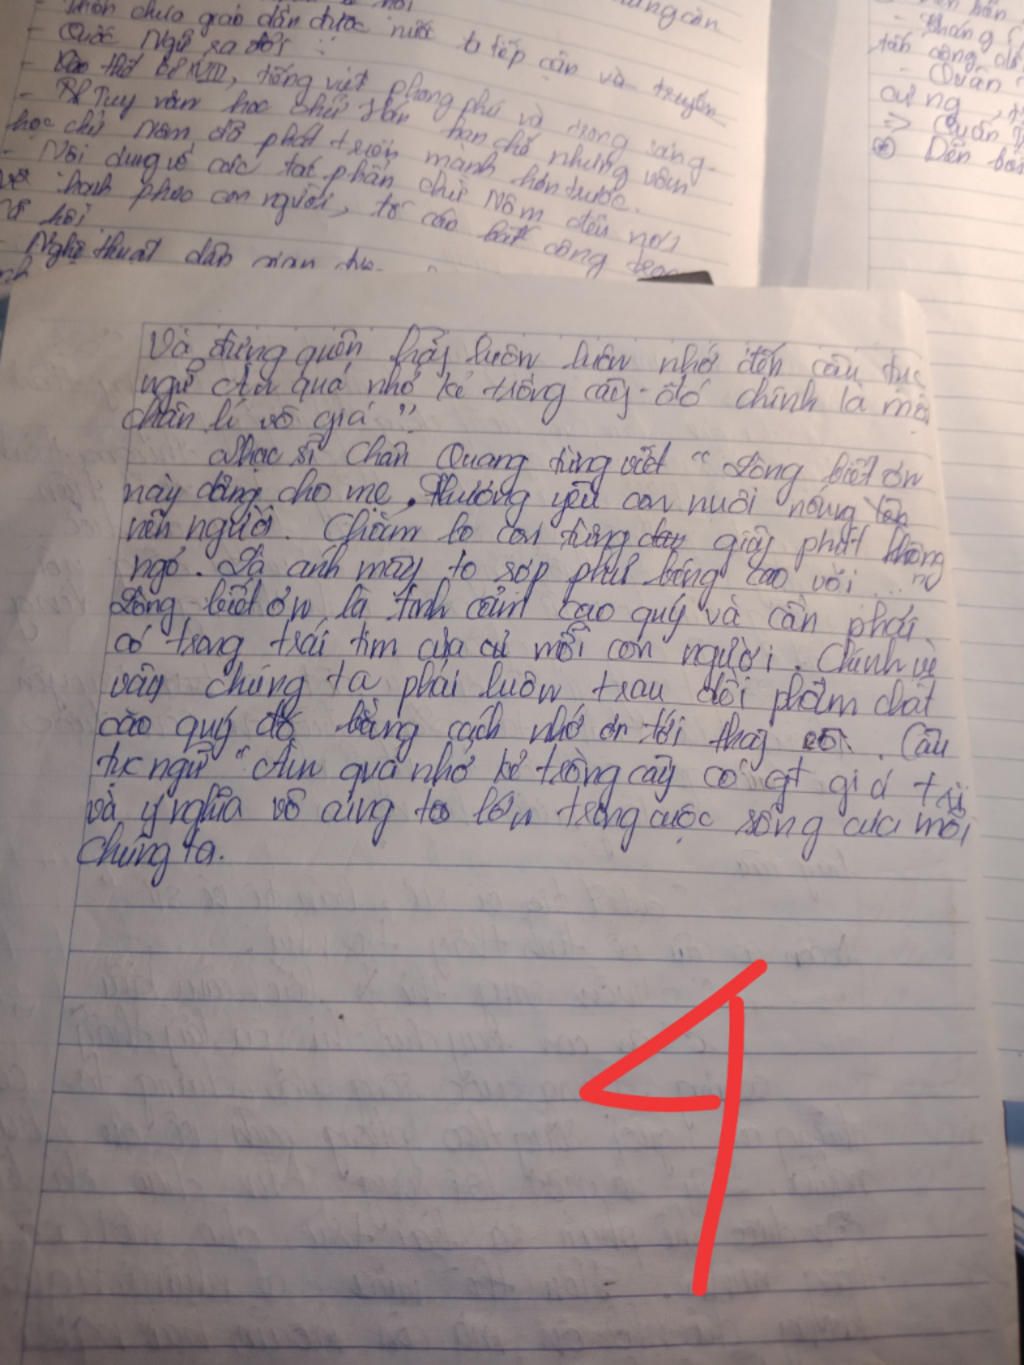 - thôn chưa giáo dần được nước ta tiếp cận và truyền
- Quốc Ngữ ra đời
- thế kỉ XVIII, tiếng việt phong phú và trong sáng.
- Tuy văn học chữ Hán hạn chế nhưng văn
học chữ Nôm đã phát triển mạnh hơn trước.
- Nội dung các tác phẩm chữ Nôm đều nói
hạnh phúc con người, tố cáo bất công
hội
- Nghệ thuật dân gian
tấn công
- Quân
cứng,
=> Quân
Đến
Và đừng quên hãy luôn luôn nhớ đến câu tục
ngữ Ăn quả nhớ kẻ trồng cây - đó chính là một
chân lí vô giá."
Nhạc sĩ Chân Quang từng viết "Lòng biết ơn
này dâng cho mẹ, thương yêu con nuôi nấng lên
nên người. Chăm lo con từng giây phút không
ngớ. Là ánh mây to sớp phut bóng cao vời ..."
Lòng biết ơn là tình cảm cao quý và cần phải
có trong trái tim của cả mỗi con người. Chính vì
vậy chúng ta phải luôn trau dồi phẩm chất
cao quý đó bằng cách nhớ ơn tới thầy cô. Câu
tục ngữ "Ăn quả nhớ kẻ trồng cây có gt giá trị
và ý nghĩa vô cùng to lớn trong cuộc sống của mỗi
chúng ta.
4